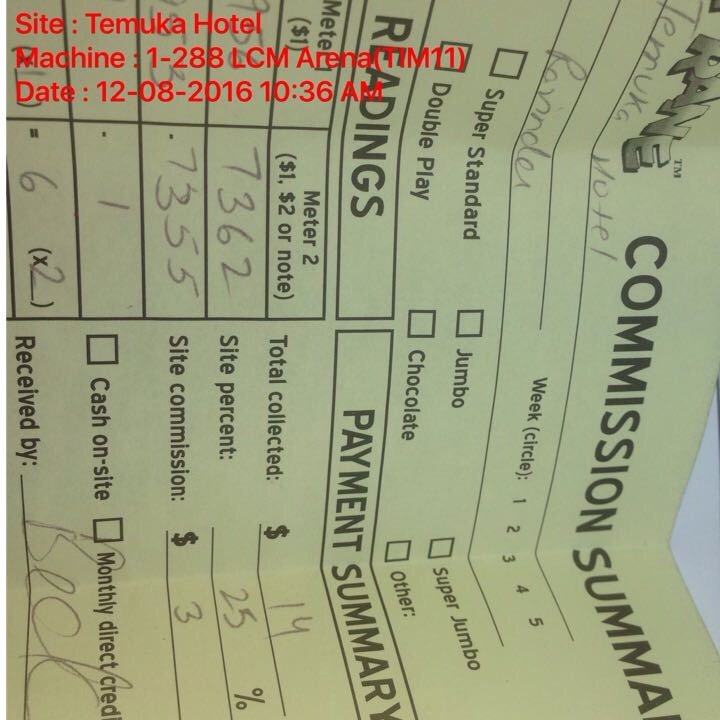 Site : Temuka Hotel
Machine : 1-288 LCM Arena(TIM11)
Date : 12-08-2016 10:36 AM
RANE™ COMMISSION SUMMA
Temuka Hotel
Ravinder
Week (circle): 1 2 3 4 5
Super Standard Jumbo Super Jumbo
Double Play Chocolate Other:
READINGS
PAYMENT SUMMARY
Meter
($1)
Meter 2
($1, $2 or note)
7362
- 7355
- 1
= 6 (x2)
Total collected: $ 14
Site percent: 25 %
Site commission: $ 3
Cash on-site Monthly direct credi
Received by: